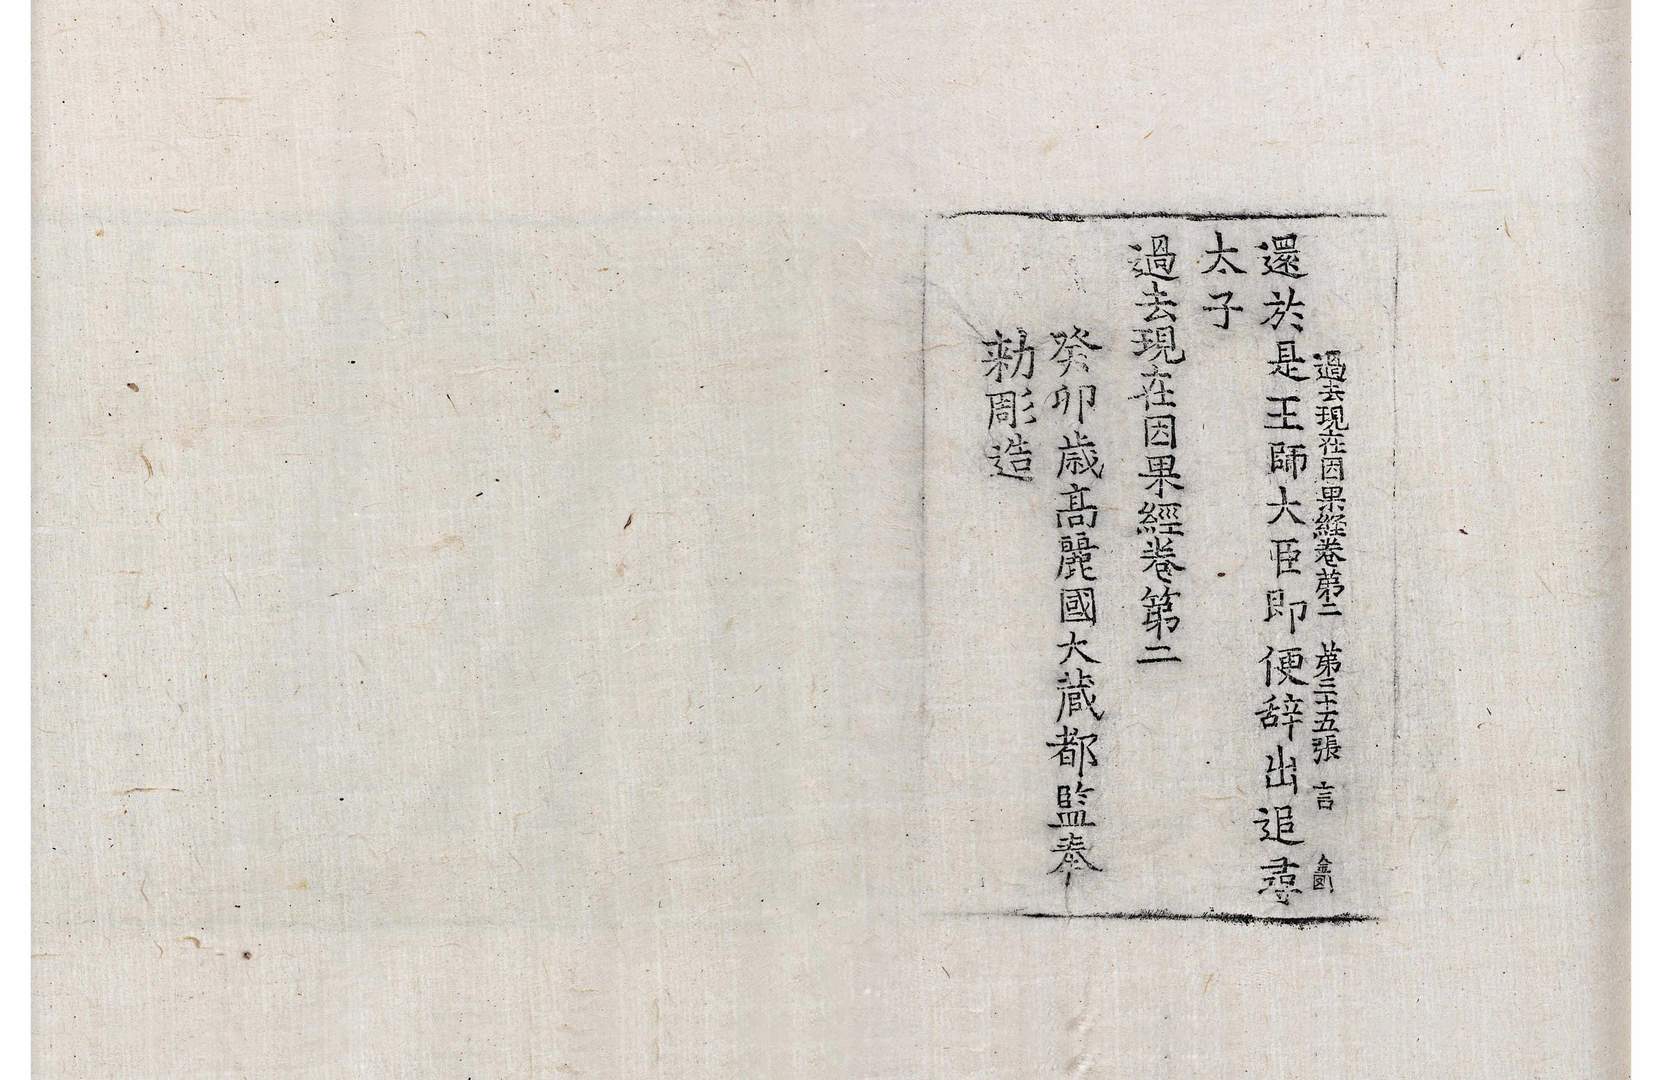 過去現在因果經卷第二 第三十五張 言
還於是王師大臣即便辞出追尋
太子
過去現在因果經卷第二
癸卯歳高麗國大蔵都監奉
勑彫造